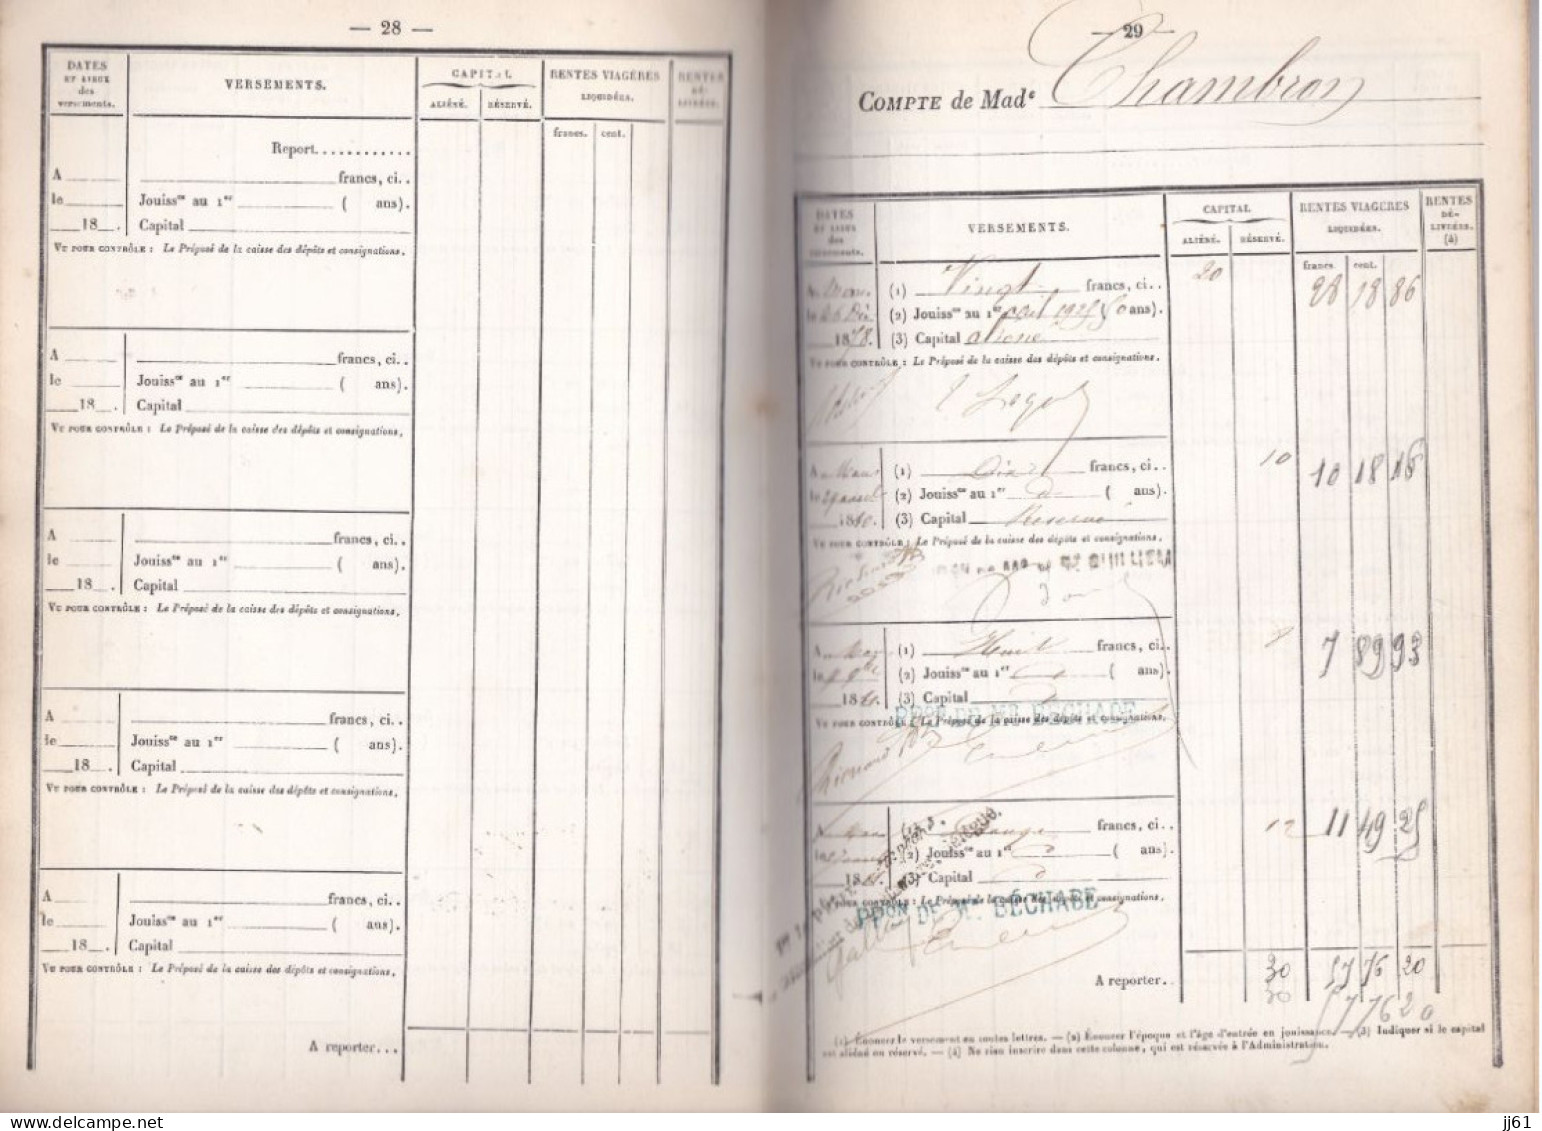 — 28 —
DATES ET LIEUX des versements.
VERSEMENTS.
CAPITAL
ALIÉNÉ. RÉSERVÉ.
RENTES VIAGÈRES LIQUIDÉES.
RENTES DÉ-LIVRÉES.
francs. cent.
Report............
A francs, ci..
le Jouiss^ce au 1^er ( ans).
18 . Capital
VU POUR CONTRÔLE : Le Préposé de la caisse des dépôts et consignations,
A francs, ci..
le Jouiss^ce au 1^er ( ans).
18 . Capital
VU POUR CONTRÔLE : Le Préposé de la caisse des dépôts et consignations,
A francs, ci..
le Jouiss^ce au 1^er ( ans).
18 . Capital
VU POUR CONTRÔLE : Le Préposé de la caisse des dépôts et consignations,
A francs, ci..
le Jouiss^ce au 1^er ( ans).
18 . Capital
VU POUR CONTRÔLE : Le Préposé de la caisse des dépôts et consignations,
A francs, ci..
le Jouiss^ce au 1^er ( ans).
18 . Capital
VU POUR CONTRÔLE : Le Préposé de la caisse des dépôts et consignations,
A reporter...
— 29 —
COMPTE de Mad^e Chambron
DATES ET LIEUX des versements.
VERSEMENTS.
CAPITAL
ALIÉNÉ. RÉSERVÉ.
RENTES VIAGÈRES LIQUIDÉES.
RENTES DÉ-LIVRÉES. (4)
francs. cent.
A (1) Vingt francs, ci.. 20 28 18 86
le (2) Jouiss^ce au 1^er (50 ans).
1878. (3) Capital aliéné
VU POUR CONTRÔLE : Le Préposé de la caisse des dépôts et consignations,
A (1) Dix francs, ci.. 10 10 18 16
le 29 (2) Jouiss^ce au 1^er d° ( ans).
1880. (3) Capital Réservé
VU POUR CONTRÔLE : Le Préposé de la caisse des dépôts et consignations,
A (1) Huit francs, ci.. 8 7 89 93
le (2) Jouiss^ce au 1^er ( ans).
18 (3) Capital
VU POUR CONTRÔLE : Le Préposé de la caisse des dépôts et consignations,
PP^ON DE M^R BÉCHADE
A (1) Douze francs, ci.. 12 11 49 25
le (2) Jouiss^ce au 1^er ( ans).
18 (3) Capital
VU POUR CONTRÔLE : Le Préposé de la caisse des dépôts et consignations,
PP^ON DE M^R BÉCHADE
A reporter.. 30 57 76 20
30 57 76 20
(1) Énoncer le versement en toutes lettres. — (2) Énoncer l'époque et l'âge d'entrée en jouissance. — (3) Indiquer si le capital
est aliéné ou réservé. — (4) Ne rien inscrire dans cette colonne, qui est réservée à l'Administration.
www.delcampe.net
jj61